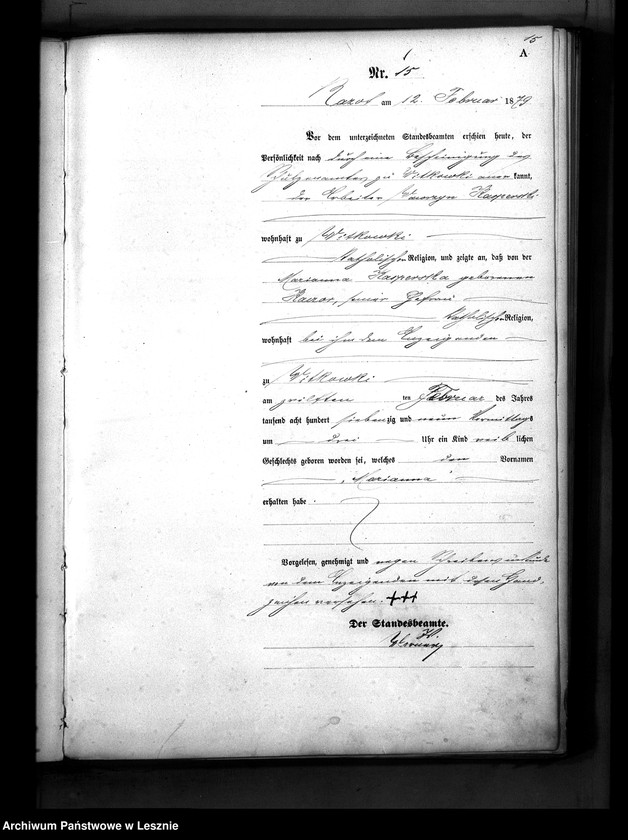 15
A
Nr. 15
Razot am 12. Februar 1879
Vor dem unterzeichneten Standesbeamten erschien heute, der
Persönlichkeit nach durch eine Bescheinigung des
zu Witkowki anerkannt,
der Arbeiter Kasperski
wohnhaft zu Witkowki
katholischer Religion, und zeigte an, daß von der
Marianna Kasperska geborenen
seiner Ehefrau
katholischer Religion,
wohnhaft bei ihm dem Anzeigenden
zu Witkowki
am zwölften ten Februar des Jahres
tausend acht hundert siebenzig und neun Vormittags
um drei Uhr ein Kind weiblichen
Geschlechts geboren worden sei, welches den Vornamen
„Marianna“
erhalten habe.
Vorgelesen, genehmigt und wegen Schreibensunkunde
von dem Anzeigenden mit dessen Hand-
zeichen versehen. +++
Der Standesbeamte.
Archiwum Państwowe w Lesznie